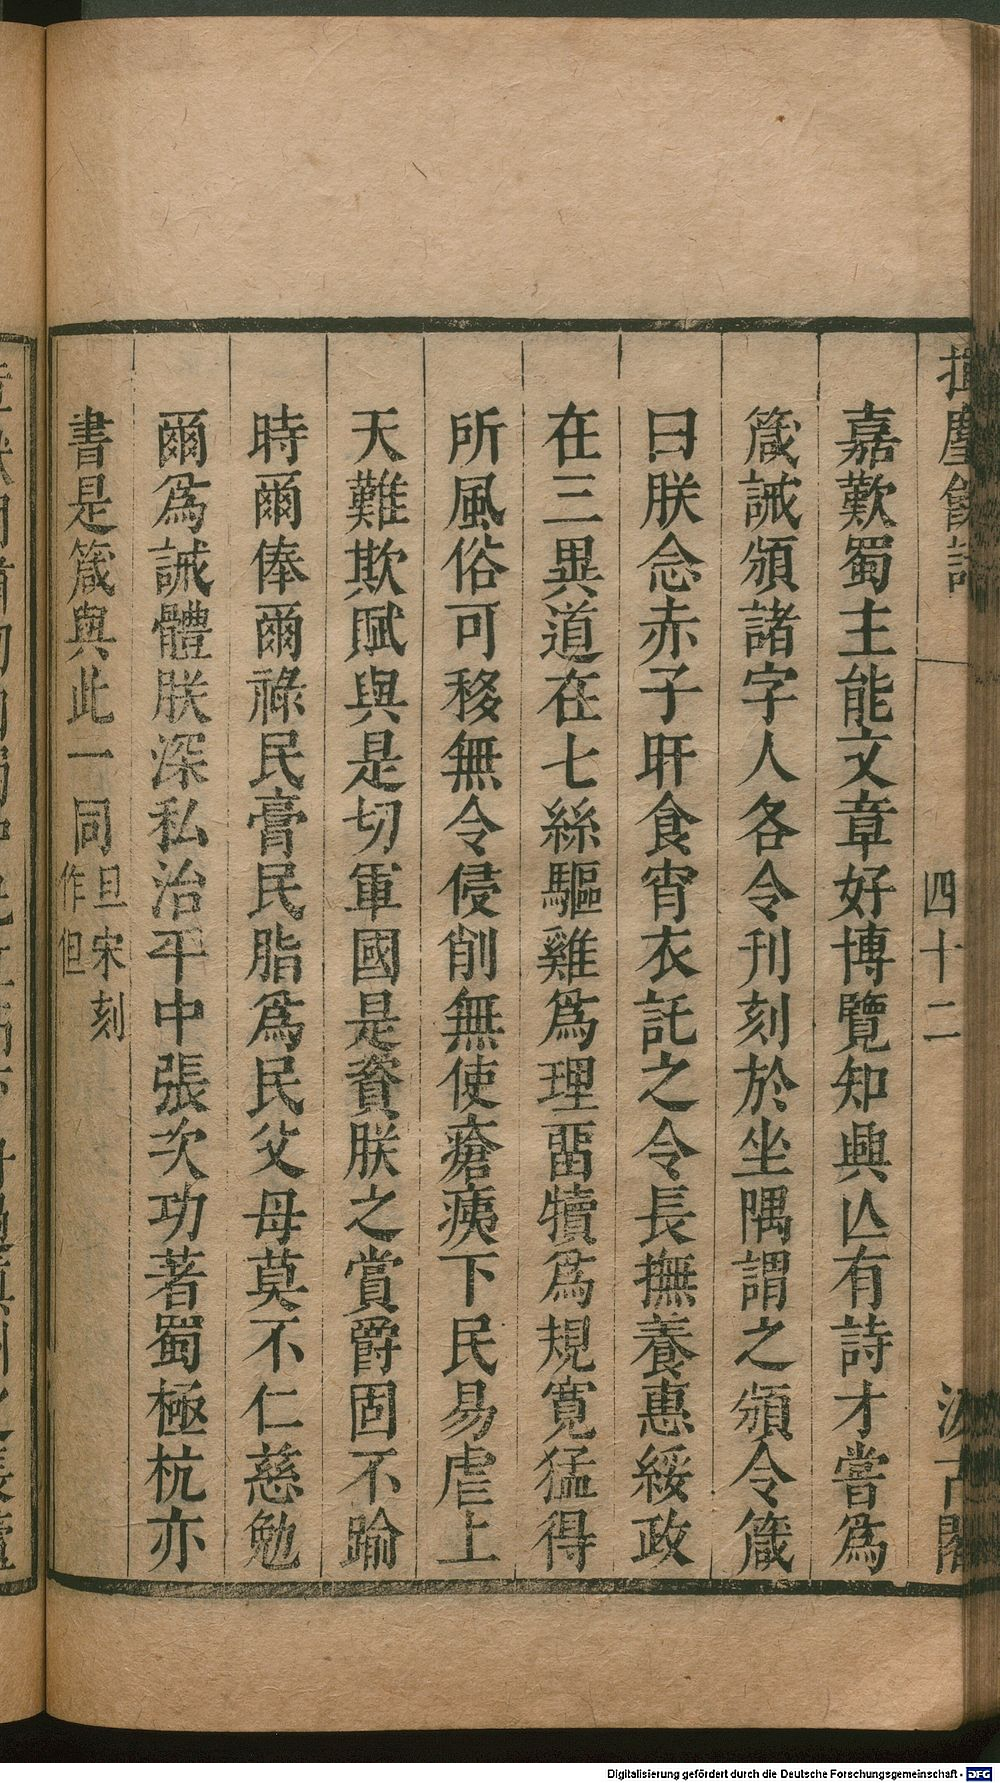 揮麈餘話
四十二
汲古閣
嘉歎蜀主能文章好博覽知興亾有詩才嘗爲
箴誡頒諸字人各令刊刻於坐隅謂之頒令箴
曰朕念赤子旰食宵衣託之令長撫養惠綏政
在三異道在七絲驅雞爲理畱犢爲規寬猛得
所風俗可移無令侵削無使瘡痍下民易虐上
天難欺賦與是切軍國是資朕之賞爵固不踰
時爾俸爾祿民膏民脂爲民父母莫不仁慈勉
爾爲誡體朕深私治平中張次功著蜀檮杌亦
書是箴與此一同旦宋刻
作但
Digitalisierung gefördert durch die Deutsche Forschungsgemeinschaft - DFG